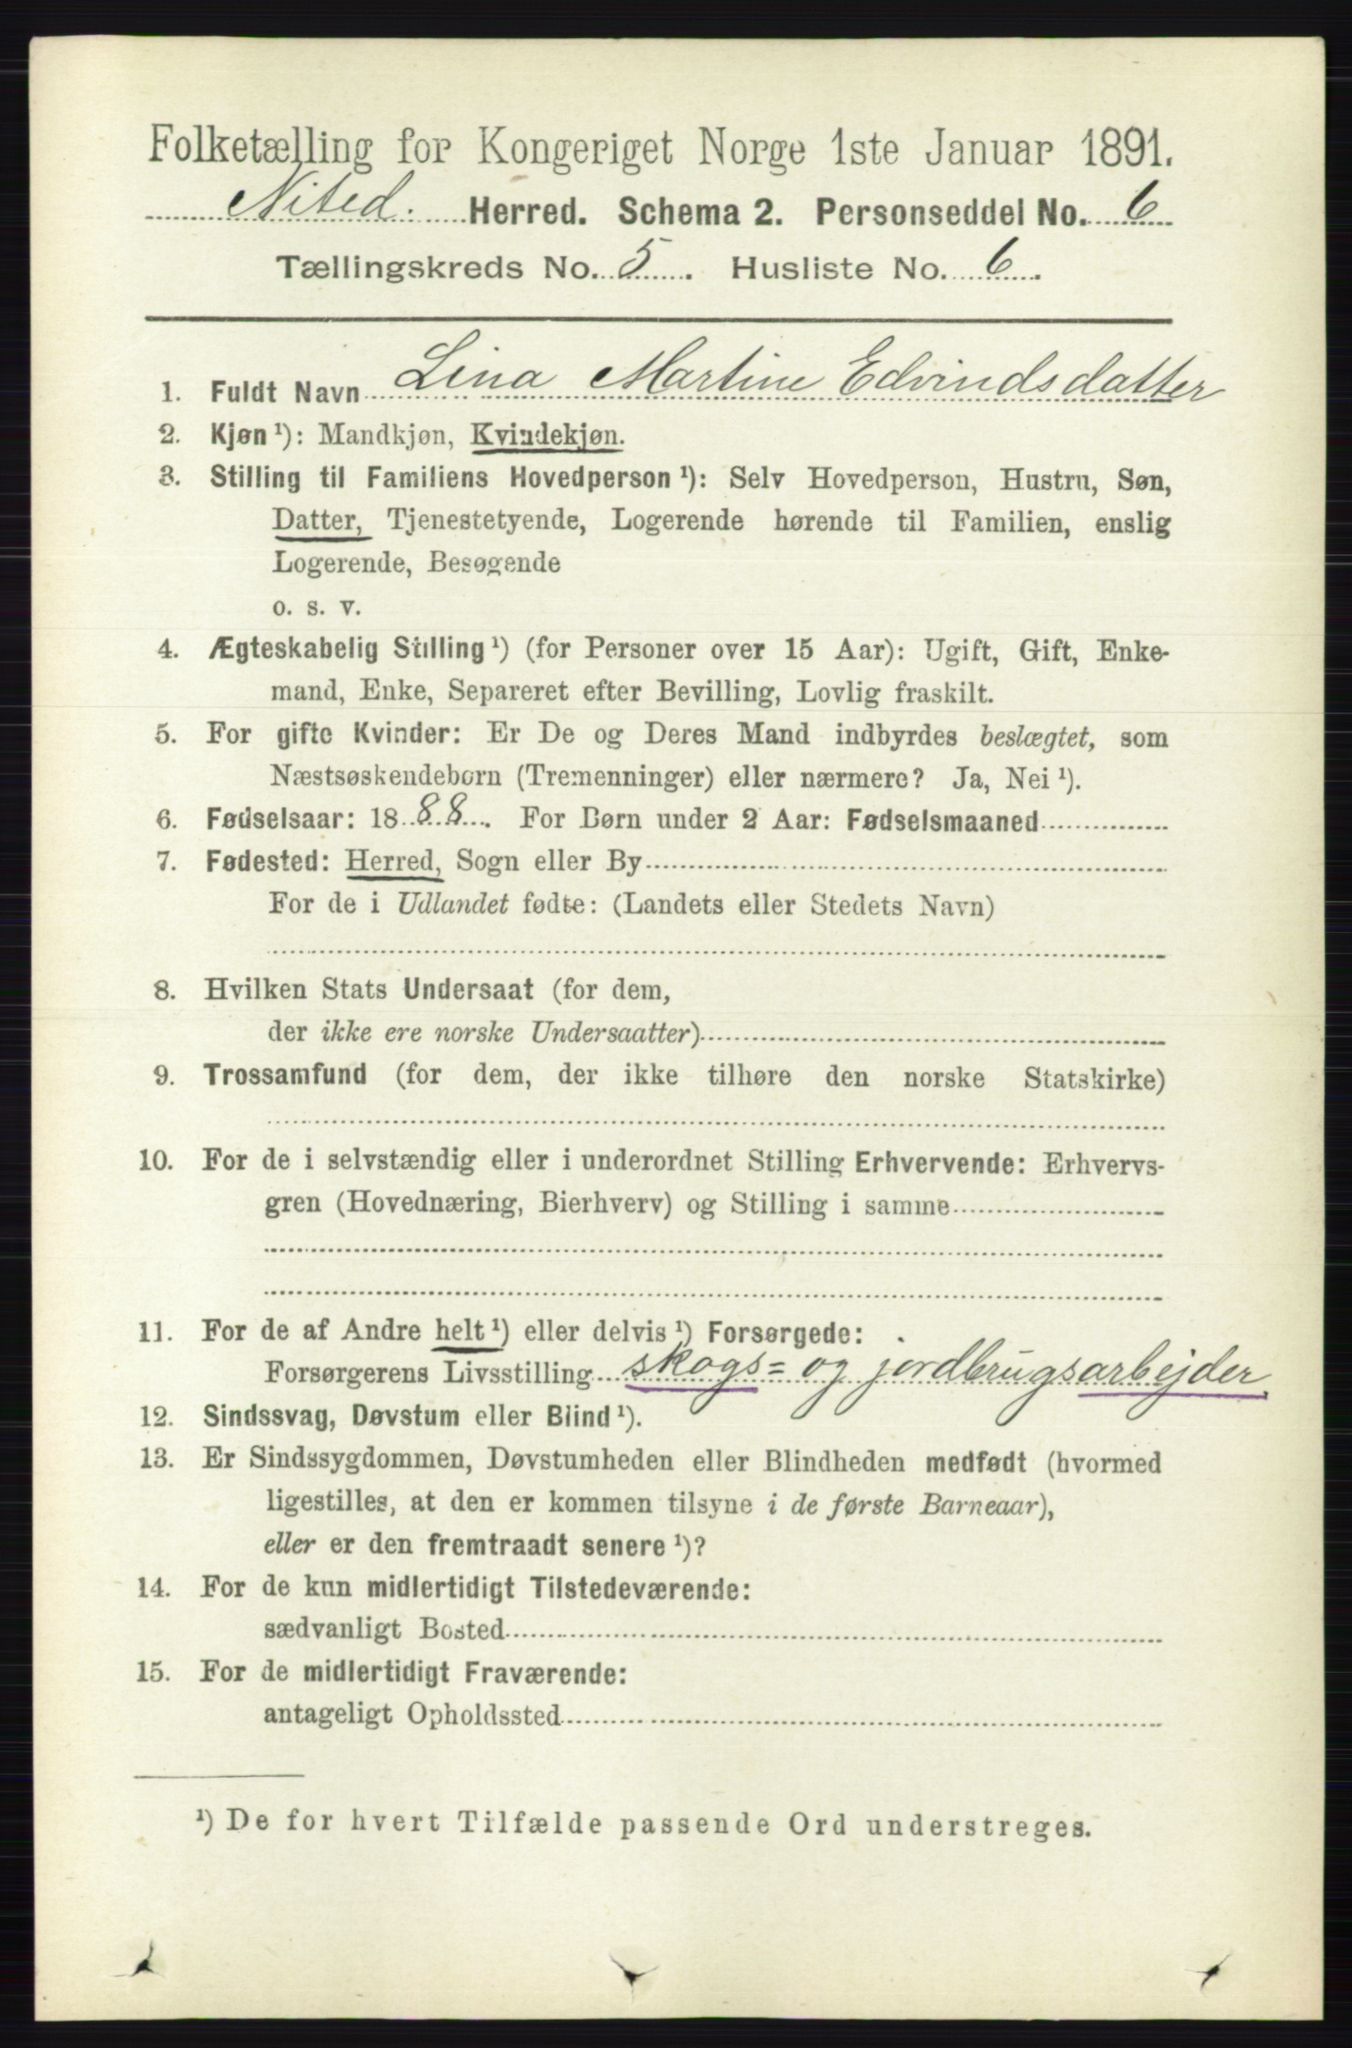 Folketælling for Kongeriget Norge 1ste Januar 1891.
Nited. Herred. Schema 2. Personseddel No. 6
Tællingskreds No. 5. Husliste No. 6.
1. Fuldt Navn Lina Martine Edvindsdatter
2. Kjøn ¹): Mandkjøn, Kvindekjøn.
3. Stilling til Familiens Hovedperson ¹): Selv Hovedperson, Hustru, Søn,
Datter, Tjenestetyende, Logerende hørende til Familien, enslig
Logerende, Besøgende
o. s. v.
4. Ægteskabelig Stilling ¹) (for Personer over 15 Aar): Ugift, Gift, Enke-
mand, Enke, Separeret efter Bevilling, Lovlig fraskilt.
5. For gifte Kvinder: Er De og Deres Mand indbyrdes beslægtet, som
Næstsøskendebørn (Tremenninger) eller nærmere? Ja, Nei ¹).
6. Fødselsaar: 1888. For Børn under 2 Aar: Fødselsmaaned
7. Fødested: Herred, Sogn eller By
For de i Udlandet fødte: (Landets eller Stedets Navn)
8. Hvilken Stats Undersaat (for dem,
der ikke ere norske Undersaatter)
9. Trossamfund (for dem, der ikke tilhøre den norske Statskirke)
10. For de i selvstændig eller i underordnet Stilling Erhvervende: Erhvervs-
gren (Hovednæring, Bierhverv) og Stilling i samme
11. For de af Andre helt ¹) eller delvis ¹) Forsørgede:
Forsørgerens Livsstilling skogs= og jordbrugsarbejder
12. Sindssvag, Døvstum eller Blind ¹).
13. Er Sindssygdommen, Døvstumheden eller Blindheden medfødt (hvormed
ligestilles, at den er kommen tilsyne i de første Barneaar),
eller er den fremtraadt senere ¹)?
14. For de kun midlertidigt Tilstedeværende:
sædvanligt Bosted
15. For de midlertidigt Fraværende:
antageligt Opholdssted
¹) De for hvert Tilfælde passende Ord understreges.